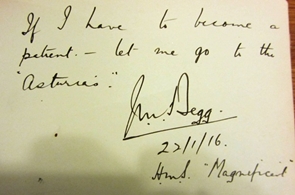 If I have to become a
patient. – let me go to the
"Asturias".
J.M. Begg.
22/1/16.
H.M.S. "Magnificent"